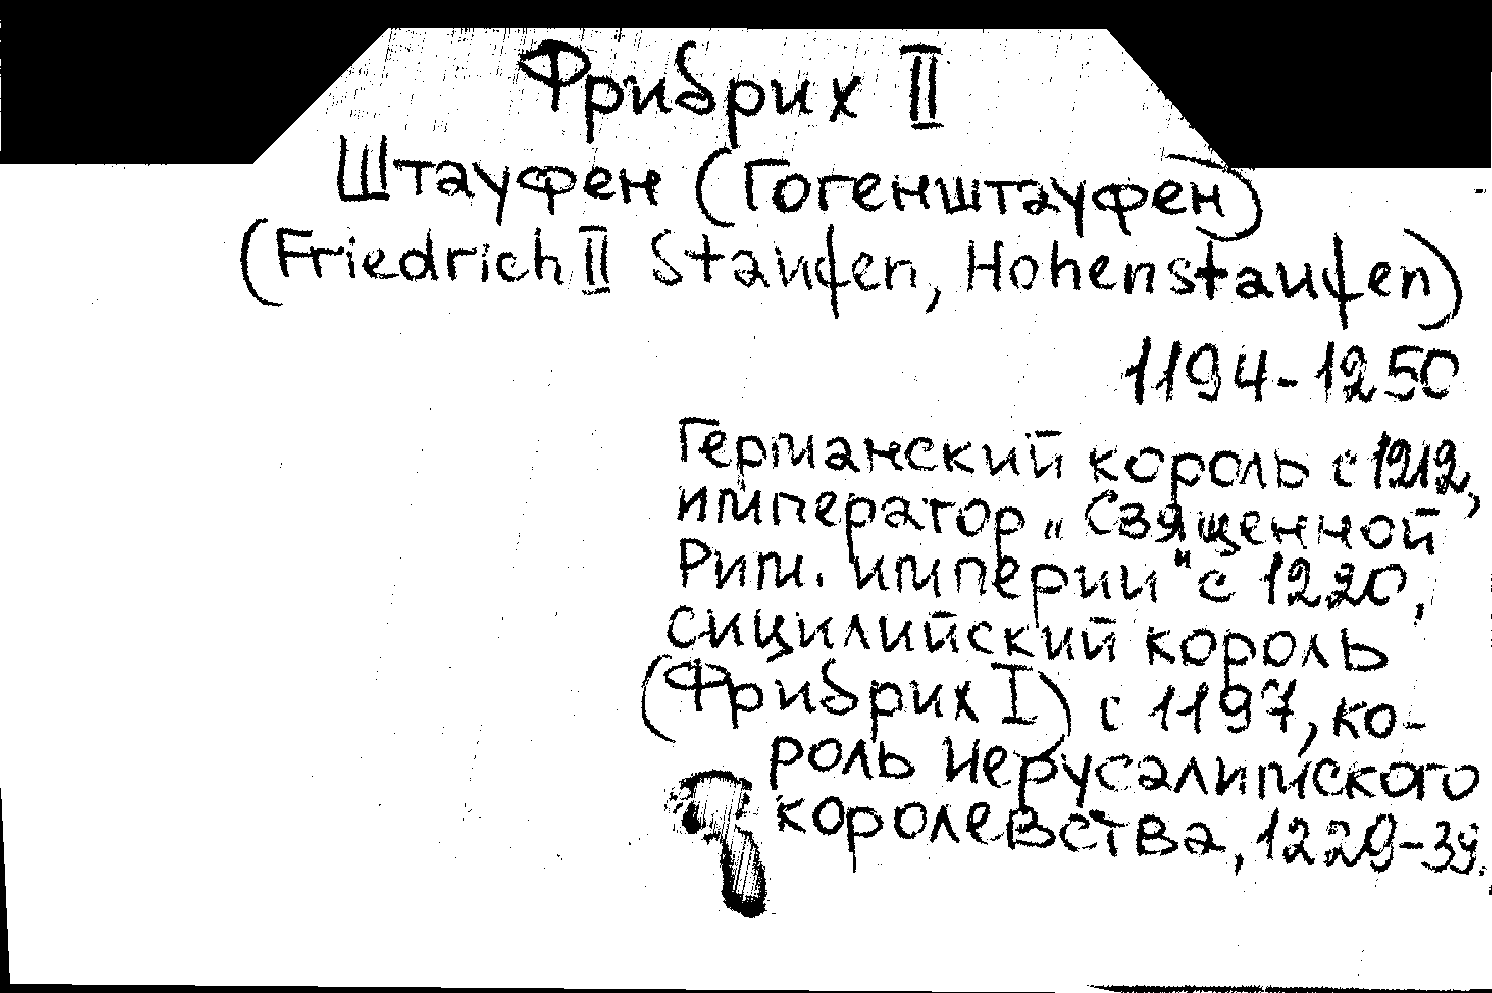 Фридрих II
Штауфен (Гогенштауфен)
(Friedrich II Staufen, Hohenstaufen)
1194-1250
Германский король с 1212,
император „Священной
Рим. империи" с 1220,
сицилийский король
(Фридрих I) с 1197, ко-
роль Иерусалимского
королевства, 1229-39.